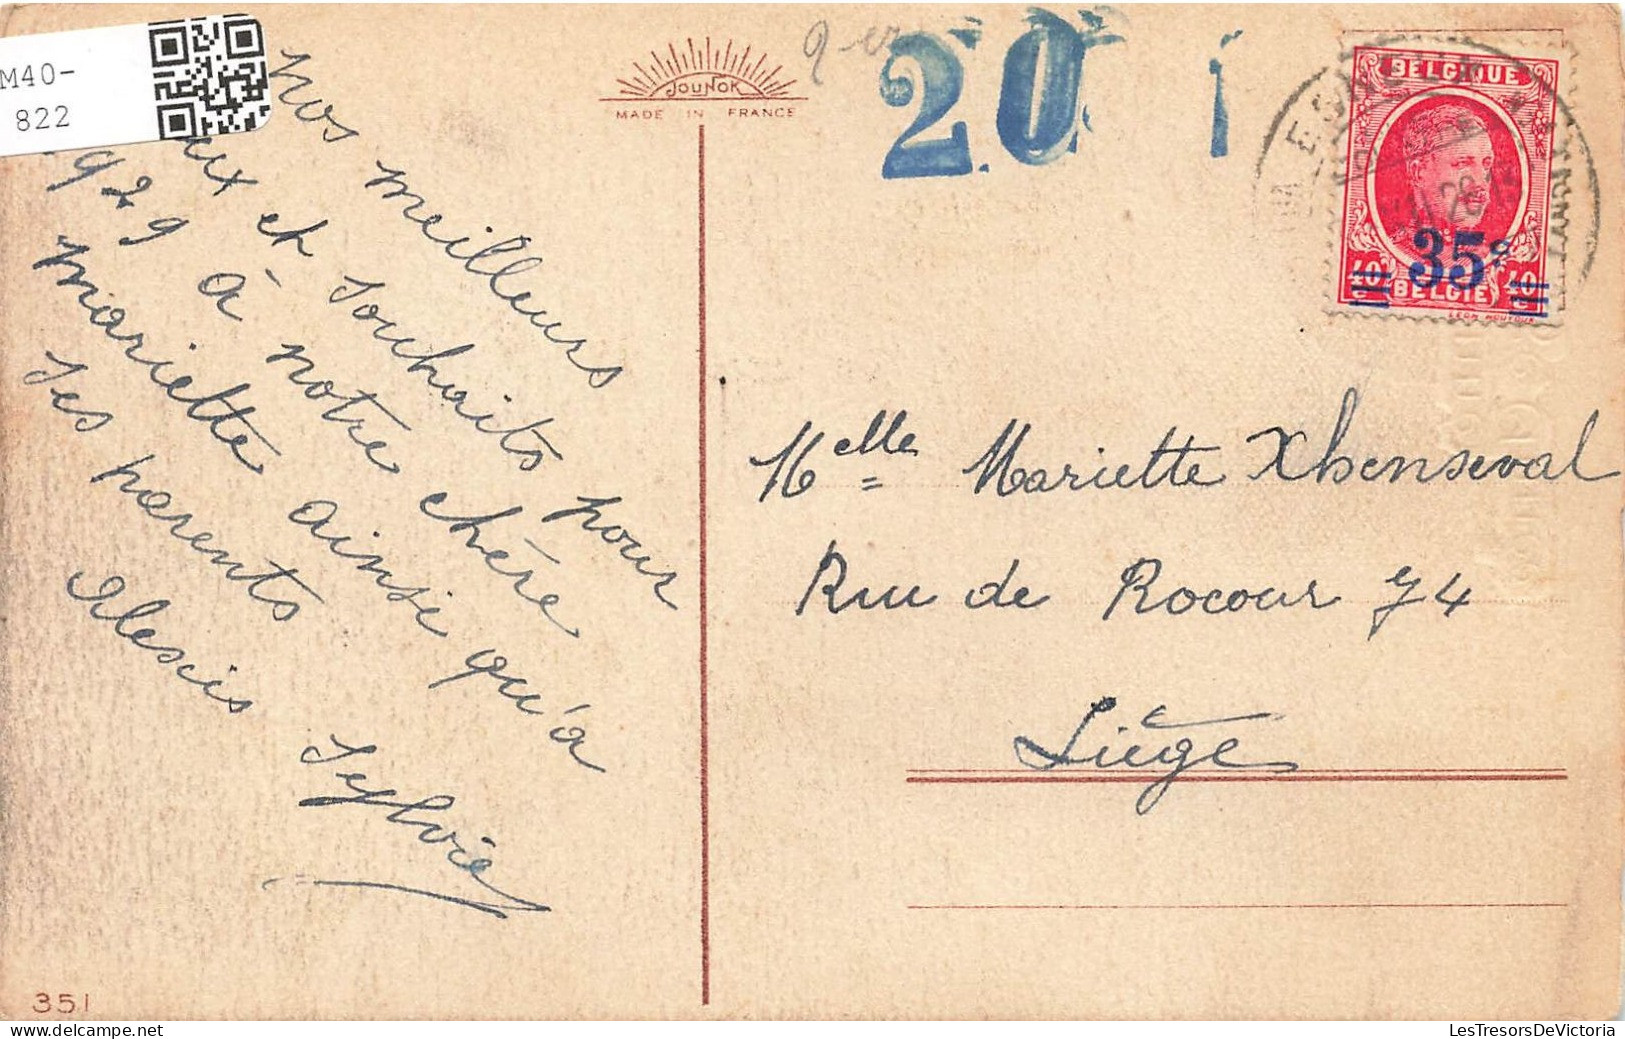 M40-
822
nos meilleurs
et souhaits pour
1929 à notre chère
Mariette ainsi qu'à
ses parents
Alexis Sylvie
JOUNOK
MADE IN FRANCE
20
BELGIQUE
35c
40 BELGIË 40
Melle Mariette Xhenseval
Rue de Rocour 74
Liége
351
LesTresorsDeVictoria.com